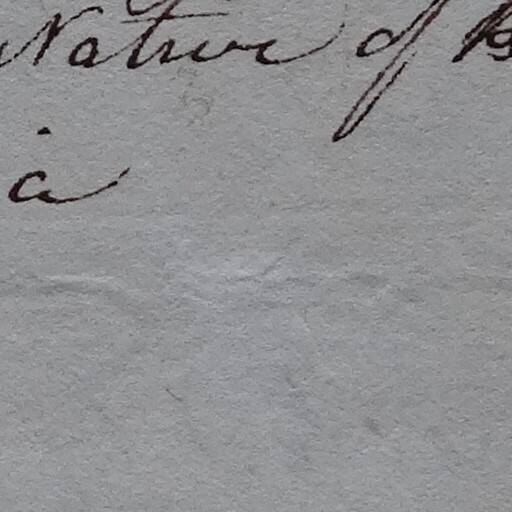 Native of B
ia